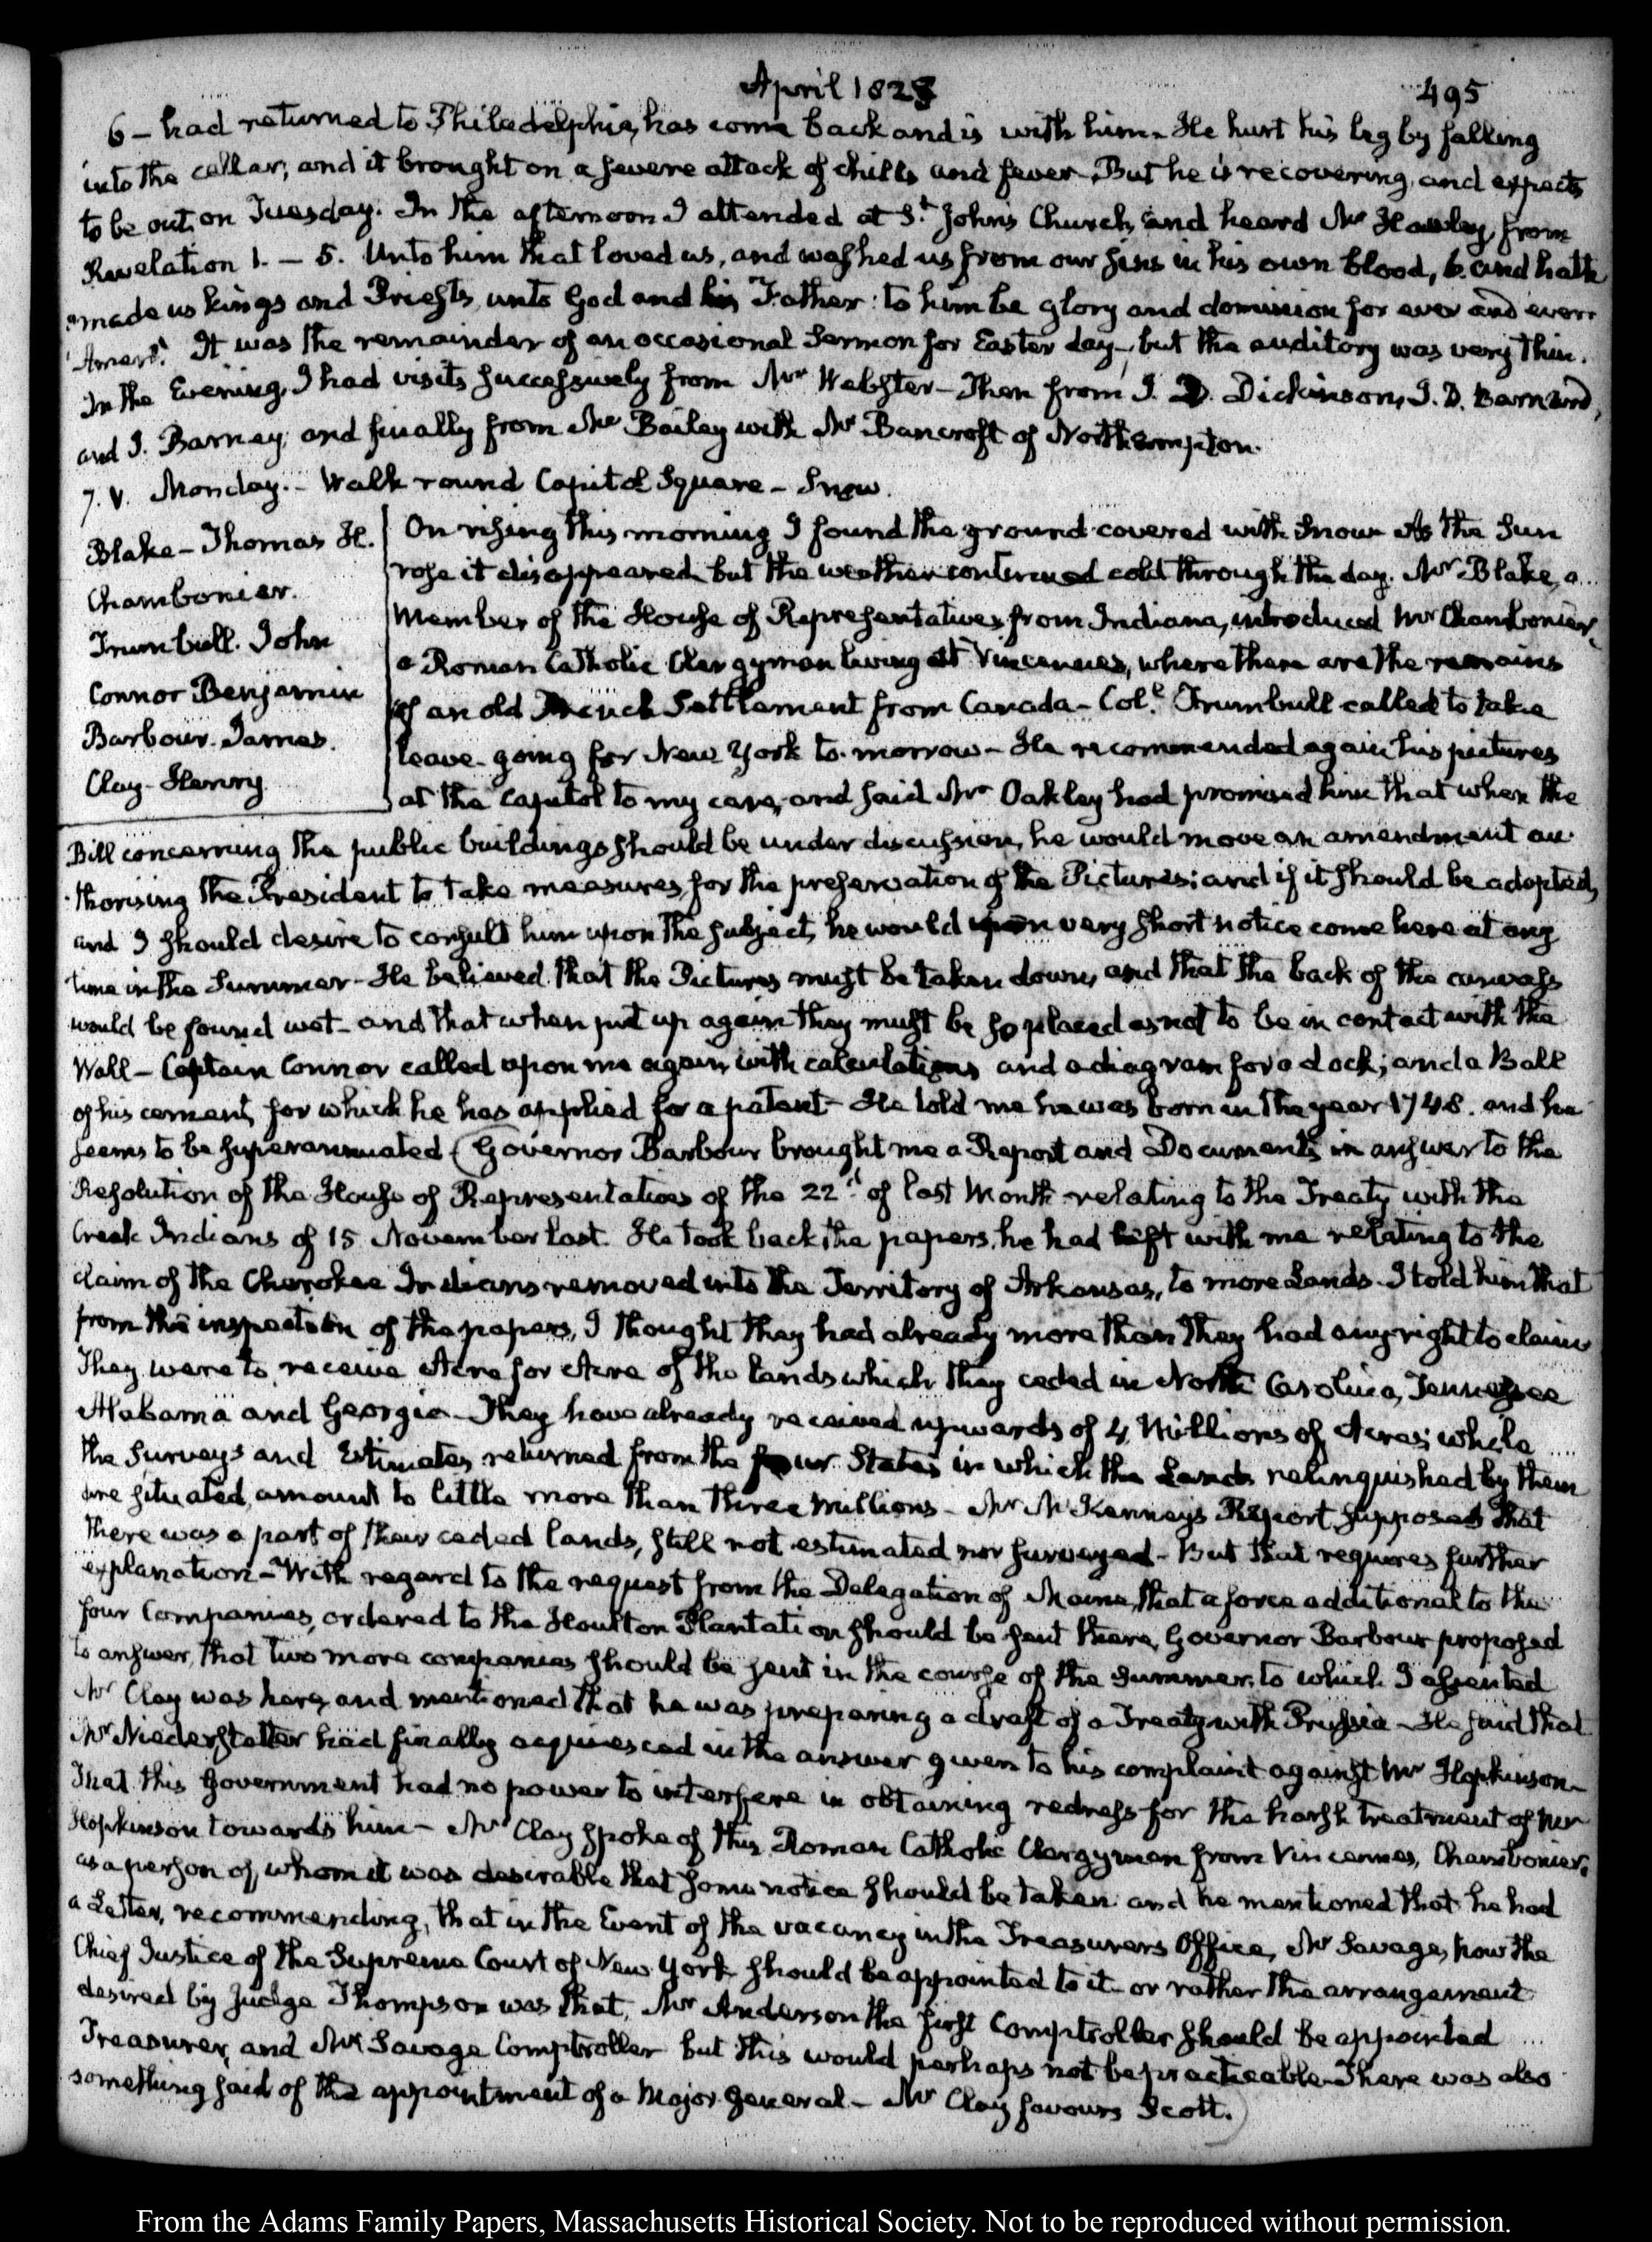 April 1828
495
6 - had returned to Philadelphia, has come back and is with him. He hurt his leg by falling
into the cellar, and it brought on a severe attack of chills and fever. But he is recovering, and expects
to be out on Tuesday. In the afternoon I attended at St. John's Church, and heard Mr Hawley, from
Revelation 1. - 5. Unto him that loved us, and washed us from our sins in his own blood, 6. and hath
"made us kings and Priests unto God and his Father: to him be glory and dominion for ever and ever.
'Amen." It was the remainder of an occasional Sermon for Easter day, but the auditory was very thin.
In the Evening, I had visits successively from Mr Webster - Then from J. D. Dickinson, I. D. Barnard,
and J. Barney, and finally from Mr Bailey with Mr Bancroft of Northampton.
7. V. Monday. - Walk round Capitol Square - Snow.
Blake - Thomas H.
Chambonier.
Trumbull. John
Connor Benjamin
Barbour. James.
Clay - Henry
On rising this morning I found the ground covered with snow. As the Sun
rose it disappeared, but the weather continued cold through the day. Mr Blake, a
Member of the House of Representatives from Indiana, introduced Mr Chambonier,
a Roman Catholic Clergyman living at Vincennes, where there are the remains
of an old French Settlement from Canada - Coll. Trumbull called to take
leave - going for New York to-morrow - He recommended again his pictures
at the Capitol to my care, and said Mr Oakley had promised him that when the
Bill concerning the public buildings should be under discussion, he would move an amendment au-
thorising the President to take measures for the preservation of the Pictures; and if it should be adopted,
and I should desire to consult him upon the subject, he would upon very short notice come here at any
time in the Summer - He believed that the Pictures must be taken down, and that the back of the canvass
would be found wet - and that when put up again they must be so placed as not to be in contact with the
Wall - Captain Connor called upon me again with calculations and a diagram for a dock; and a Ball
of his cement, for which he has applied for a patent - He told me he was born in the year 1748. and he
seems to be superannuated (Governor Barbour brought me a Report and Documents in answer to the
Resolution of the House of Representatives of the 22d. of last Month relating to the Treaty with the
Creek Indians of 15 November last. He took back the papers, he had left with me relating to the
claim of the Cherokee Indians removed into the Territory of Arkansas, to more Lands - I told him that
from the inspection of the papers, I thought they had already more than they had any right to claim
They were to receive Acre for Acre of the lands which they ceded in North Carolina, Tennessee
Alabama and Georgia - They have already received upwards of 4 Millions of Acres; while
the Surveys and Estimates returned from the four States in which the Lands relinquished by them
are situated, amount to little more than three millions - Mr McKenney's Report supposes that
there was a part of their ceded lands, still not estimated nor surveyed - But that requires further
explanation - With regard to the request from the Delegation of Maine, that a force additional to the
four Companies, ordered to the Houlton Plantation should be sent there, Governor Barbour proposed
to answer, that two more companies should be sent in the course of the Summer, to which I assented
Mr Clay was here, and mentioned that he was preparing a draft of a Treaty with Prussia - He said that
Mr Niederstetter had finally acquiesced in the answer given to his complaint against Mr Hopkinson -
That this Government had no power to interfere in obtaining redress for the harsh treatment of Mr
Hopkinson towards him - Mr Clay spoke of this Roman Catholic Clergyman from Vincennes, Chambonier,
as a person of whom it was desirable that some notice should be taken and he mentioned that he had
a Letter, recommending, that in the Event of the vacancy in the Treasurer's Office, Mr Savage, now the
Chief Justice of the Supreme Court of New York should be appointed to it - or rather the arrangement
desired by Judge Thompson was that, Mr Anderson the first Comptroller should be appointed
Treasurer, and Mr Savage Comptroller but this would perhaps not be practicable - There was also
something said of the appointment of a Major General - Mr Clay favours Scott.)
From the Adams Family Papers, Massachusetts Historical Society. Not to be reproduced without permission.